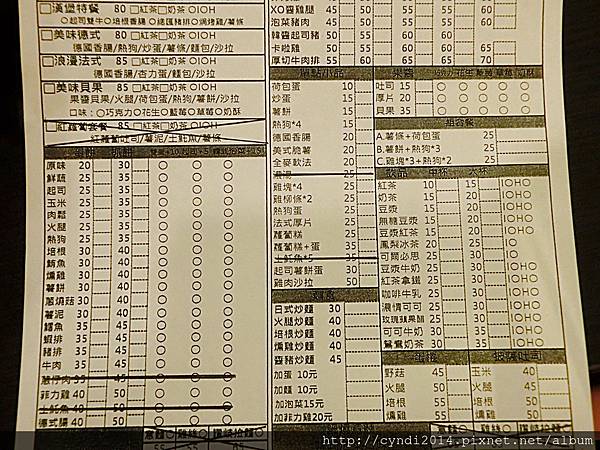 漢堡特餐 80 □紅茶□奶茶 ○I○H
○起司雙牛○培根香腸
□美味德式 80 □紅茶□奶茶 ○I○H
德國香腸/熱狗/炒蛋/薯條/麵包/沙拉
□浪漫法式 85 □紅茶□奶茶 ○I○H
德國香腸/杏力蛋/麵包/沙拉
□美味貝果 85 □紅茶□奶茶 ○I○H
果醬貝果/火腿/荷包蛋/熱狗/薯餅/沙拉
口味：○巧克力○花生○藍莓○草莓○奶酥
紅蘿蔔套餐 85 □紅茶□奶茶 ○I○H
紅蘿蔔吐司/薯泥/土魠魚/薯條
原味 20 30
鮮蔬 25 35
起司 25 35
玉米 25 35
肉鬆 25 35
火腿 25 35
熱狗 25 35
培根 30 40
鮪魚 30 40
燻雞 30 40
薯餅 30 40
蔥燒菇 30 40
薯泥 30 40
鱈魚 35 45
蝦排 35 45
豬排 35 45
牛肉 35 45
蔥仔肉 35 45
菲力雞 40 50
土魠魚 40 50
德式腸 40 50
XO醬雞腿 45 55
泡菜豬肉 45 55
韓醬起司豬
卡啦雞 50 60 60 65
厚切牛肉排 55 65 65 70
單點小品
荷包蛋 10
炒蛋 15
薯餅 15
熱狗*4 15
德國香腸 20
美式脆薯 20
全麥軟法 20
濃湯 25
雞塊*4 25
雞柳條*2 25
熱狗蛋 25
法式厚片 25
蘿蔔糕 25
蘿蔔糕+蛋 35
土魠魚*5 35
起司薯餅蛋 30
雞肉沙拉 50
日式炒麵 30
火腿炒麵 40
培根炒麵 40
燻雞炒麵 40
醬豬炒麵 45
加蛋 10元
加麵 10元
加泡菜15元
加菲力雞20元
果醬
吐司 15
厚片 20
貝果 35
組合餐
A.薯條+荷包蛋 25
B.薯餅+熱狗*3 25
C.雞塊*3+熱狗*2 25
飲品 中杯 大杯
紅茶 10 15 I○H○
奶茶 15 20 I○H○
豆漿 15 20 I○H○
無糖豆漿 15 20 I○H○
豆漿紅茶 15 20 I○H○
鳳梨冰茶 20 25 I○
可爾必思 20 25 I○
豆漿牛奶 25 30 I○H○
紅茶拿鐵 25 30 I○H○
咖啡牛乳 25 30 I○H○
濃情可可 25 30 I○H○
玫瑰蘋果醋 25 30 I○H○
可可牛奶 30 35 I○H○
鴛鴦奶茶 30 35 I○H○
蛋捲 披薩吐司
野菇 45 玉米 40
火腿 50 火腿 45
培根 55 培根 50
燻雞 55 燻雞 50
http://cyndi2014.pixnet.net/album